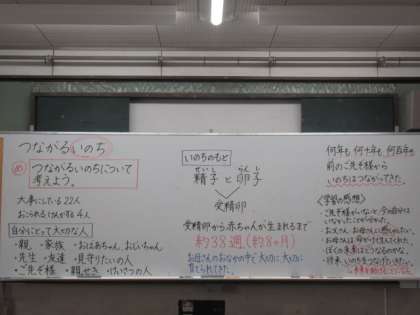 つながるいのち
め
つながるいのちについて
考えよう。
大事にしている 22人
おこられるけんかする 4人
自分にとって大切な人
・親 ・家族 ・おばあちゃん、おじいちゃん
・先生 ・友達 ・見守りたいの人
・ご先ぞ様 ・親せき ・けいさつの人
いのちのもと
せいし らんし
精子と卵子
受精卵
受精卵から赤ちゃんが生まれるまで
約38週(約8ヶ月)
お母さんのおなかの中で大切に大切に
育てられてきた。
何年も、何十年も、何百年も
前のご先ぞ様から
いのちはつながってきた。
〈学習の感想〉
・ご先ぞ様がいないと、今の自分は
いなかったことが分かった。
・お父さん、お母さんに感しゃしたい。
・お母さんは命がけで生んでくれた。
・ぼくの未来はどうなるのかな。
・将来、いのちをつなげていきたい。